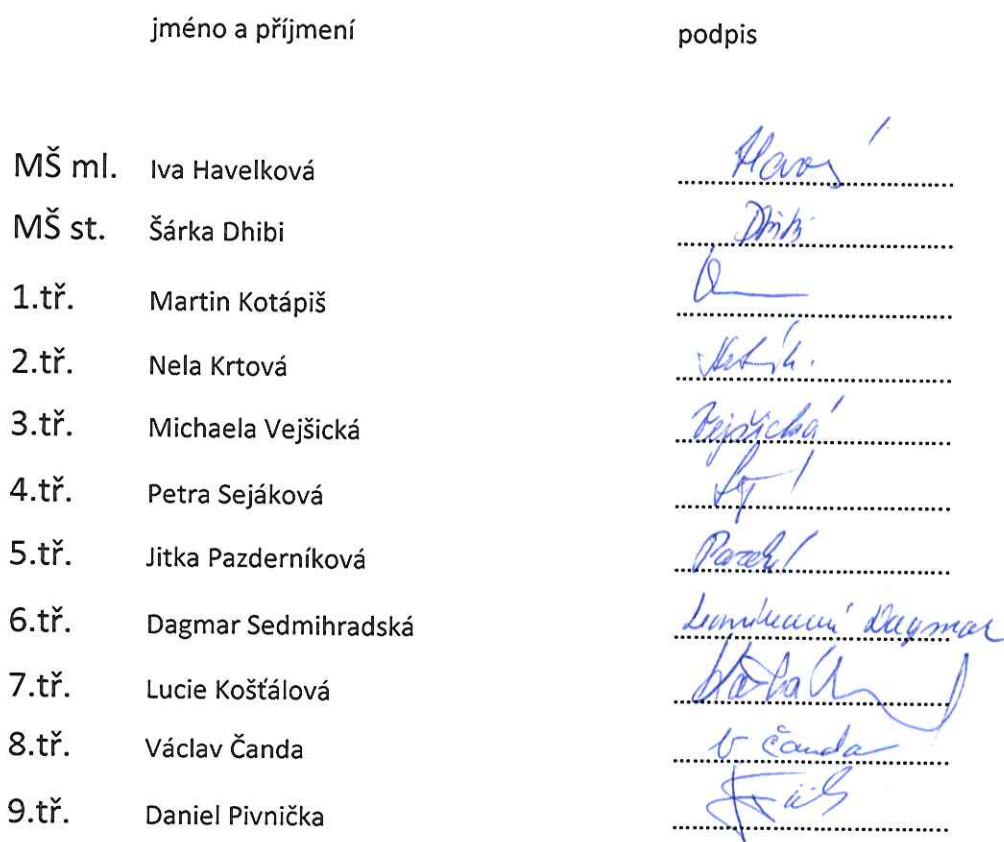 jméno a příjmení podpis
MŠ ml. Iva Havelková
MŠ st. Šárka Dhibi Dhibi
1.tř. Martin Kotápiš
2.tř. Nela Krtová
3.tř. Michaela Vejšická Vejšická
4.tř. Petra Sejáková
5.tř. Jitka Pazderníková
6.tř. Dagmar Sedmihradská Dagmar
7.tř. Lucie Košťálová
8.tř. Václav Čanda V Čanda
9.tř. Daniel Pivnička